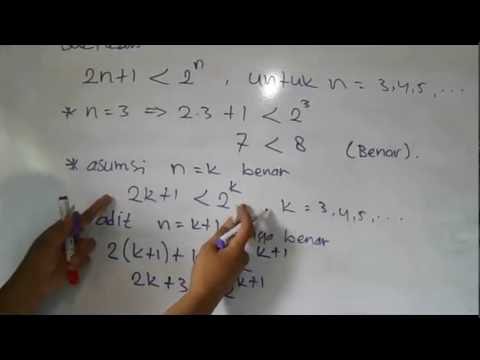 2n+1 < 2ⁿ, untuk n = 3,4,5,...
* n=3 ⇒ 2.3 + 1 < 2³
7 < 8 (Benar).
* asumsi n=k benar
2k+1 < 2ᵏ, k = 3,4,5,...
adit n=k+1 benar
2(k+1)+1 k+1
2k+3 2ᵏ⁺¹